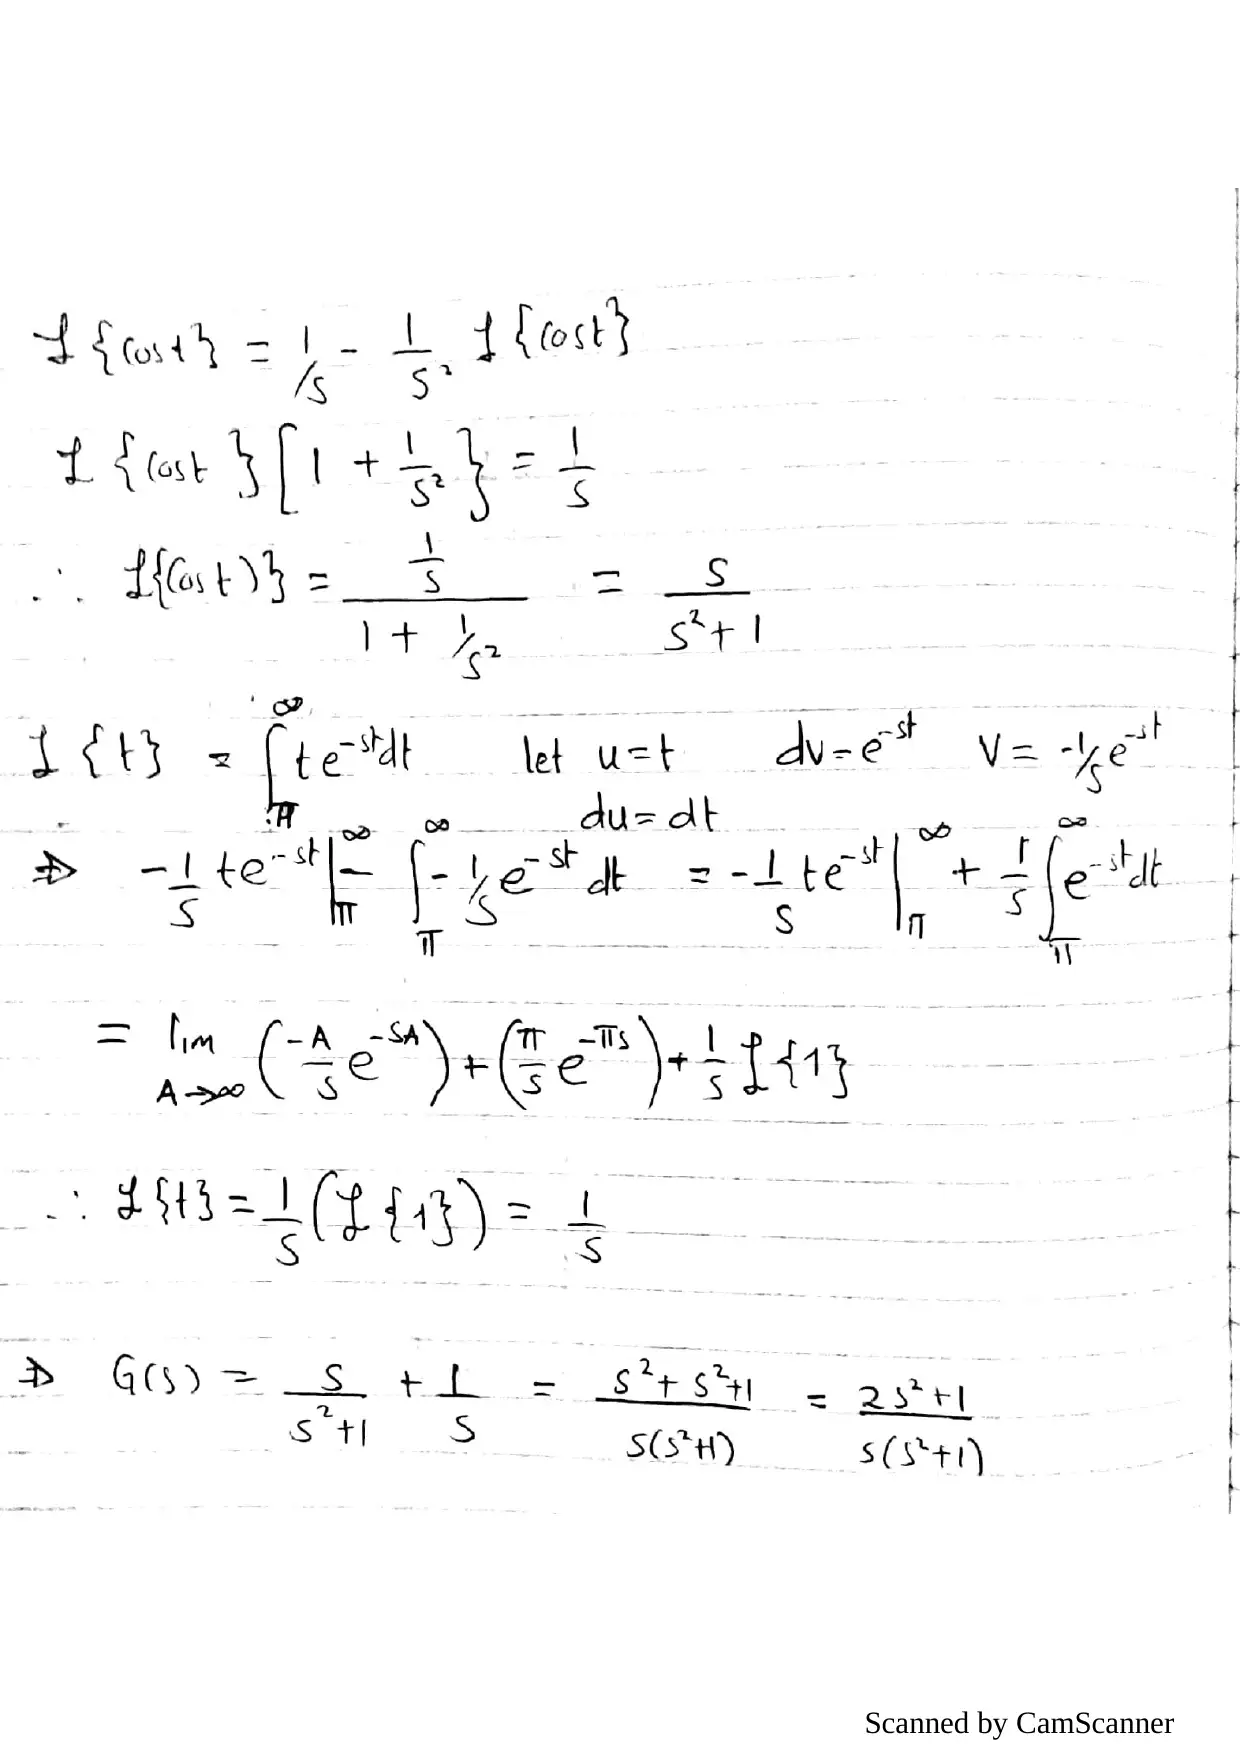 ℒ{cost} = 1/s - 1/s² ℒ{cost}
ℒ{cost}[1 + 1/s²} = 1/s
∴ ℒ{(cost)} = (1/s)/(1 + 1/s²) = s/(s²+1)
ℒ{t} = ∫_π^∞ te^(-st)dt let u=t dv=e^(-st) V= -1/s e^(-st)
du=dt
⇒ -1/s te^(-st)|_π^∞ - ∫_π^∞ -1/s e^(-st) dt = -1/s te^(-st)|_π^∞ + 1/s ∫_π^∞ e^(-st)dt
= lim_(A→∞) (-A/s e^(-sA)) + (π/s e^(-πs)) + 1/s ℒ{1}
∴ ℒ{t} = 1/s (ℒ{1}) = 1/s
⇒ G(s) = s/(s²+1) + 1/s = (s²+s²+1)/(s(s²+1)) = (2s²+1)/(s(s²+1))
Scanned by CamScanner